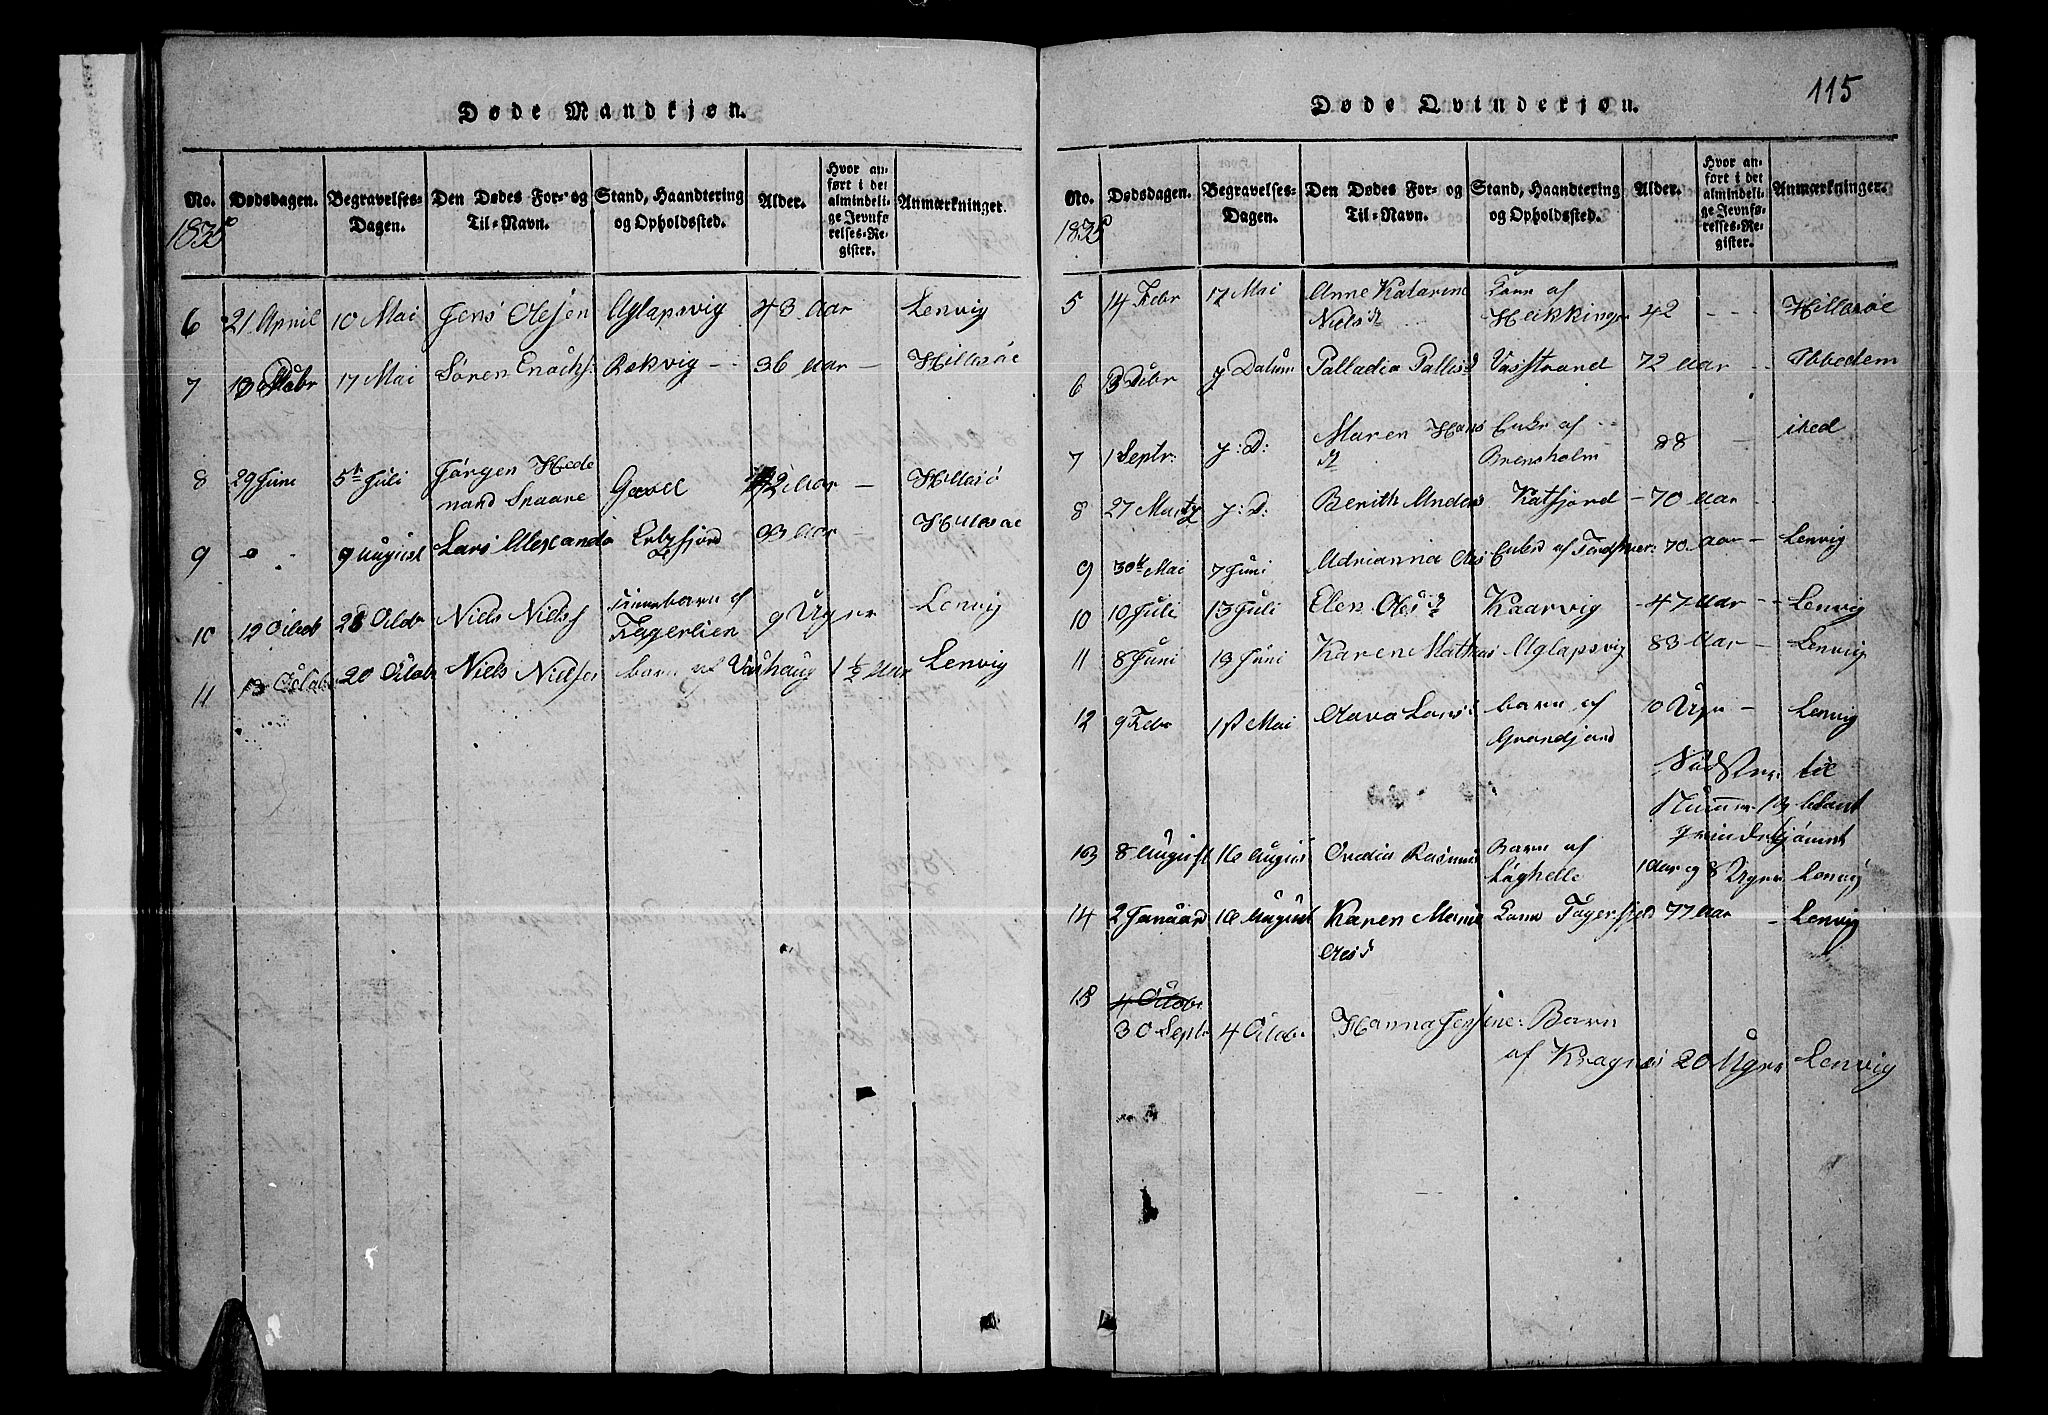 Døde Mandkjøn.
No. Dødsdagen. Begravelses-Dagen. Den Dødes For- og Til-Navn. Stand, Haandtering og Opholdssted. Alder. Hvor anført i det almindelige Jevnførelses-Register. Anmærkninger.
1835
6 21 April 10 Mai Jens Olesen Aglapsvig 43 Aar Lenvig
7 17 Mai Søren Enochs: Rekvig -- 36 Aar - Hillesøe
8 29 Juni 5te Juli Jørgen Hede
nard Snaare Gavel 2 Aar - Hillesø
9 " " 9 August Lars Alexand Erbyfjord 93 Aar - Hillesøe
10 12 Octob 28 Octobr Niels Niels Finnebarn af
Fagerlien 9 Uger Lenvig
11 13 Octobr 20 Octobr Niels Nielsen barn af Vashaug 1 1/2 Aar Lenvig
115
Døde Qvindekjøn.
No. Dødsdagen. Begravelses-Dagen. Den Dødes For- og Til-Navn. Stand, Haandtering og Opholdssted. Alder. Hvor anført i det almindelige Jevnførelses-Register. Anmærkninger.
1835
5 14 Febr 17 Mai Anne Katarine
Nielsd af
Hækkingen 42 - - - Hillesøe
6 Febr 7 Datum Palladia Pallesd Vasstrand 72 Aar - - Ibbedem
7 1 Septr: J: D: Maren Hans
d Enke af --
Brensholm 88 - ibed
8 27 Marty J: D: Berith Anders Katfjord - 70 Aar -
9 30te Mai 7 Juni Adrianna Oles Enke af 70 Aar - Lenvig
10 10 Juli 13 Juli Elen Olesd Kaarvig - 47 Aar - - Lenvig
11 8 Juni 19 Juni Karen Mathias Aglapsvig 83 Aar - Lenvig
12 9 Febr 1st Mai Lars barn af
Grandjord 10 Uger - Lenvig
til
blant
qvindekjønnet
13 8 August 16 August Ovedia Rasmus Barn af
Laghelle 1 Aar og 8 Uger Lenvig
14 2 Januar 16 August Karen Maria
Olesd 77 Aar - Lenvig
15 4 Octobr
30 Septr 4 Octobr Hanna Jensine: Barn
af Kragnes 20 Uger Lenvig